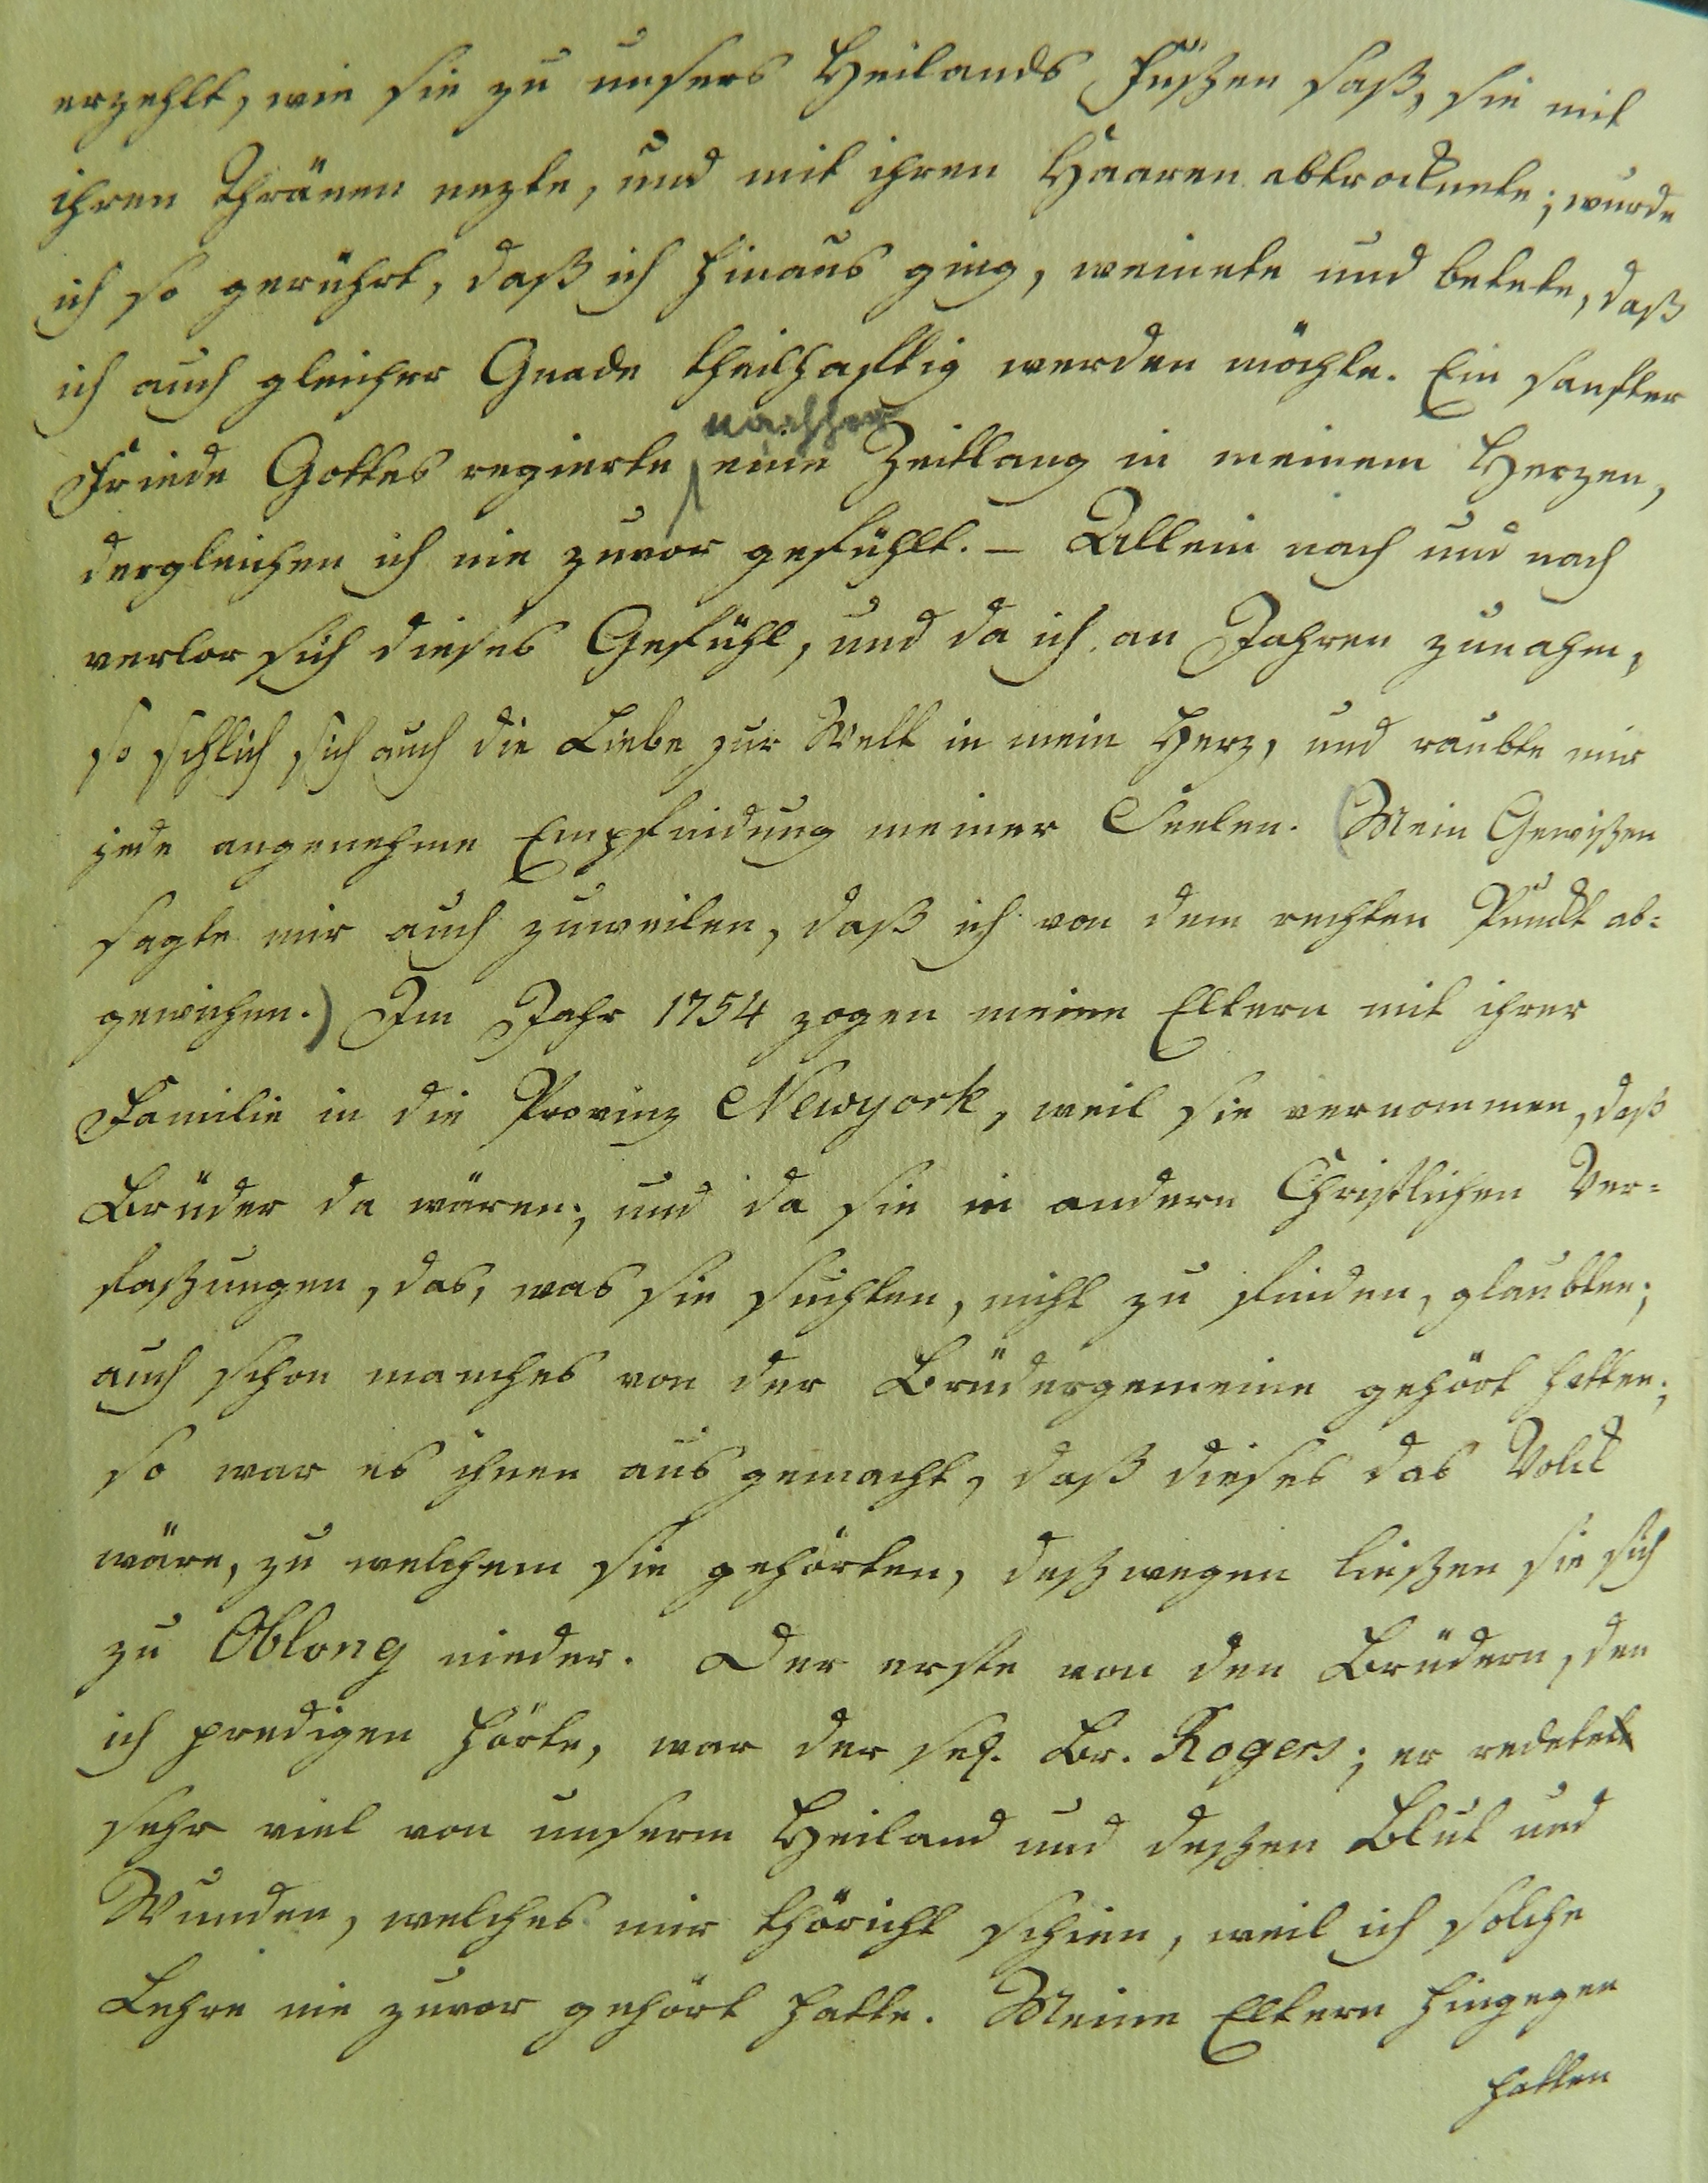 erzehlt, wie sie zu unsers Heilands Füßen saß, sie mit
ihren Thränen nezte, und mit ihren Haaren abtrocknete; wurde
ich so gerührt, daß ich hinaus ging, weinete und betete, daß
ich auch gleicher Gnade theilhafftig werden möchte. Ein sanfter
nachher
Friede Gottes regierte eine Zeitlang in meinem Herzen,
dergleichen ich nie zuvor gefühlt. – Allein nach und nach
verlor sich dieses Gefühl, und da ich an Jahren zunahm,
so schlich sich auch die Liebe zur Welt in mein Herz, und raubte mir
jede angenehme Empfindung meiner Seelen. (Mein Gewißen
sagte mir auch zuweilen, daß ich von dem rechten Punckt ab=
gewichen.) Im Jahr 1754 zogen meine Eltern mit ihrer
Familie in die Provinz Newyork, weil sie vernommen, daß
Brüder da wären; und da sie in andern Christlichen Ver=
faßungen, das, was sie suchten, nicht zu finden, glaubten;
auch schon manches von der Brüdergemeine gehört hatten;
so war es ihnen aus gemacht, daß dieses das Volck
wäre, zu welchem sie gehörten, deßwegen ließen sie sich
zu Oblong nieder. Der erste von den Brüdern, den
ich predigen hörte, war der sel. Br. Rogers; er redete
sehr viel von unserm Heiland und deßen Blut und
Wunden, welches mir thöricht schien, weil ich solche
Lehre nie zuvor gehört hatte. Meine Eltern hingegen
hatten